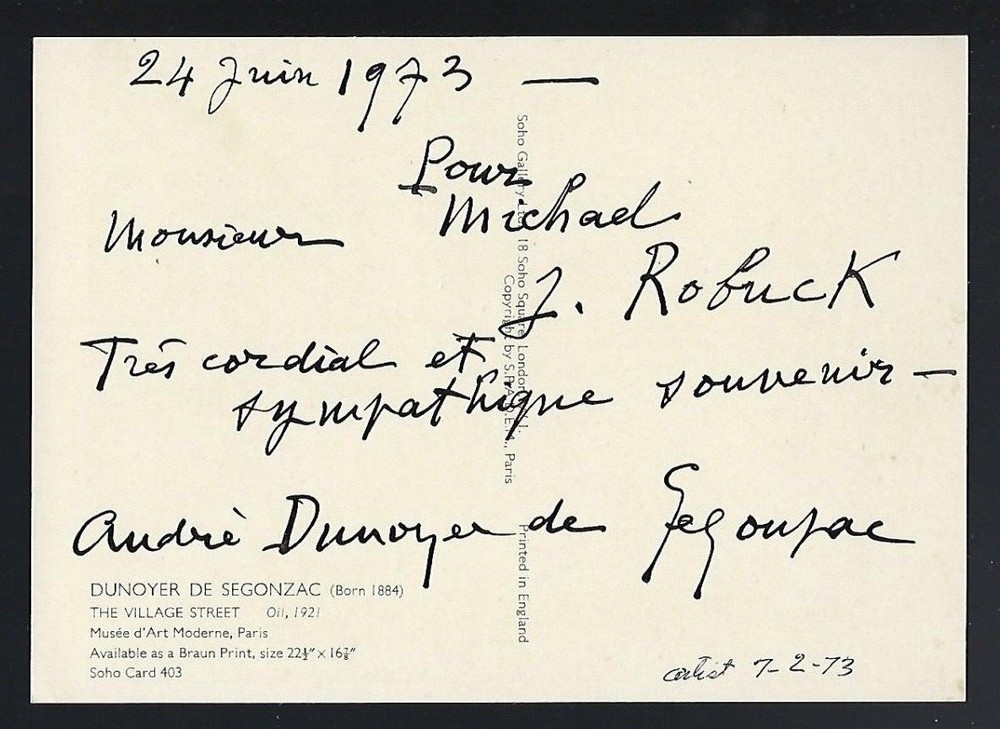 24 Juin 1973 —
Pour
Monsieur Michael
J. Robuck
Très cordial et
sympathique souvenir —
André Dunoyer de Segonzac
DUNOYER DE SEGONZAC (Born 1884)
THE VILLAGE STREET Oil, 1921
Musée d'Art Moderne, Paris
Available as a Braun Print, size 22½″ × 16⅞″
Soho Card 403
Soho Gallery Ltd., 18 Soho Square, London W.1.
Copyright by S.P.A.D.E.M., Paris
Printed in England
artist 7-2-73